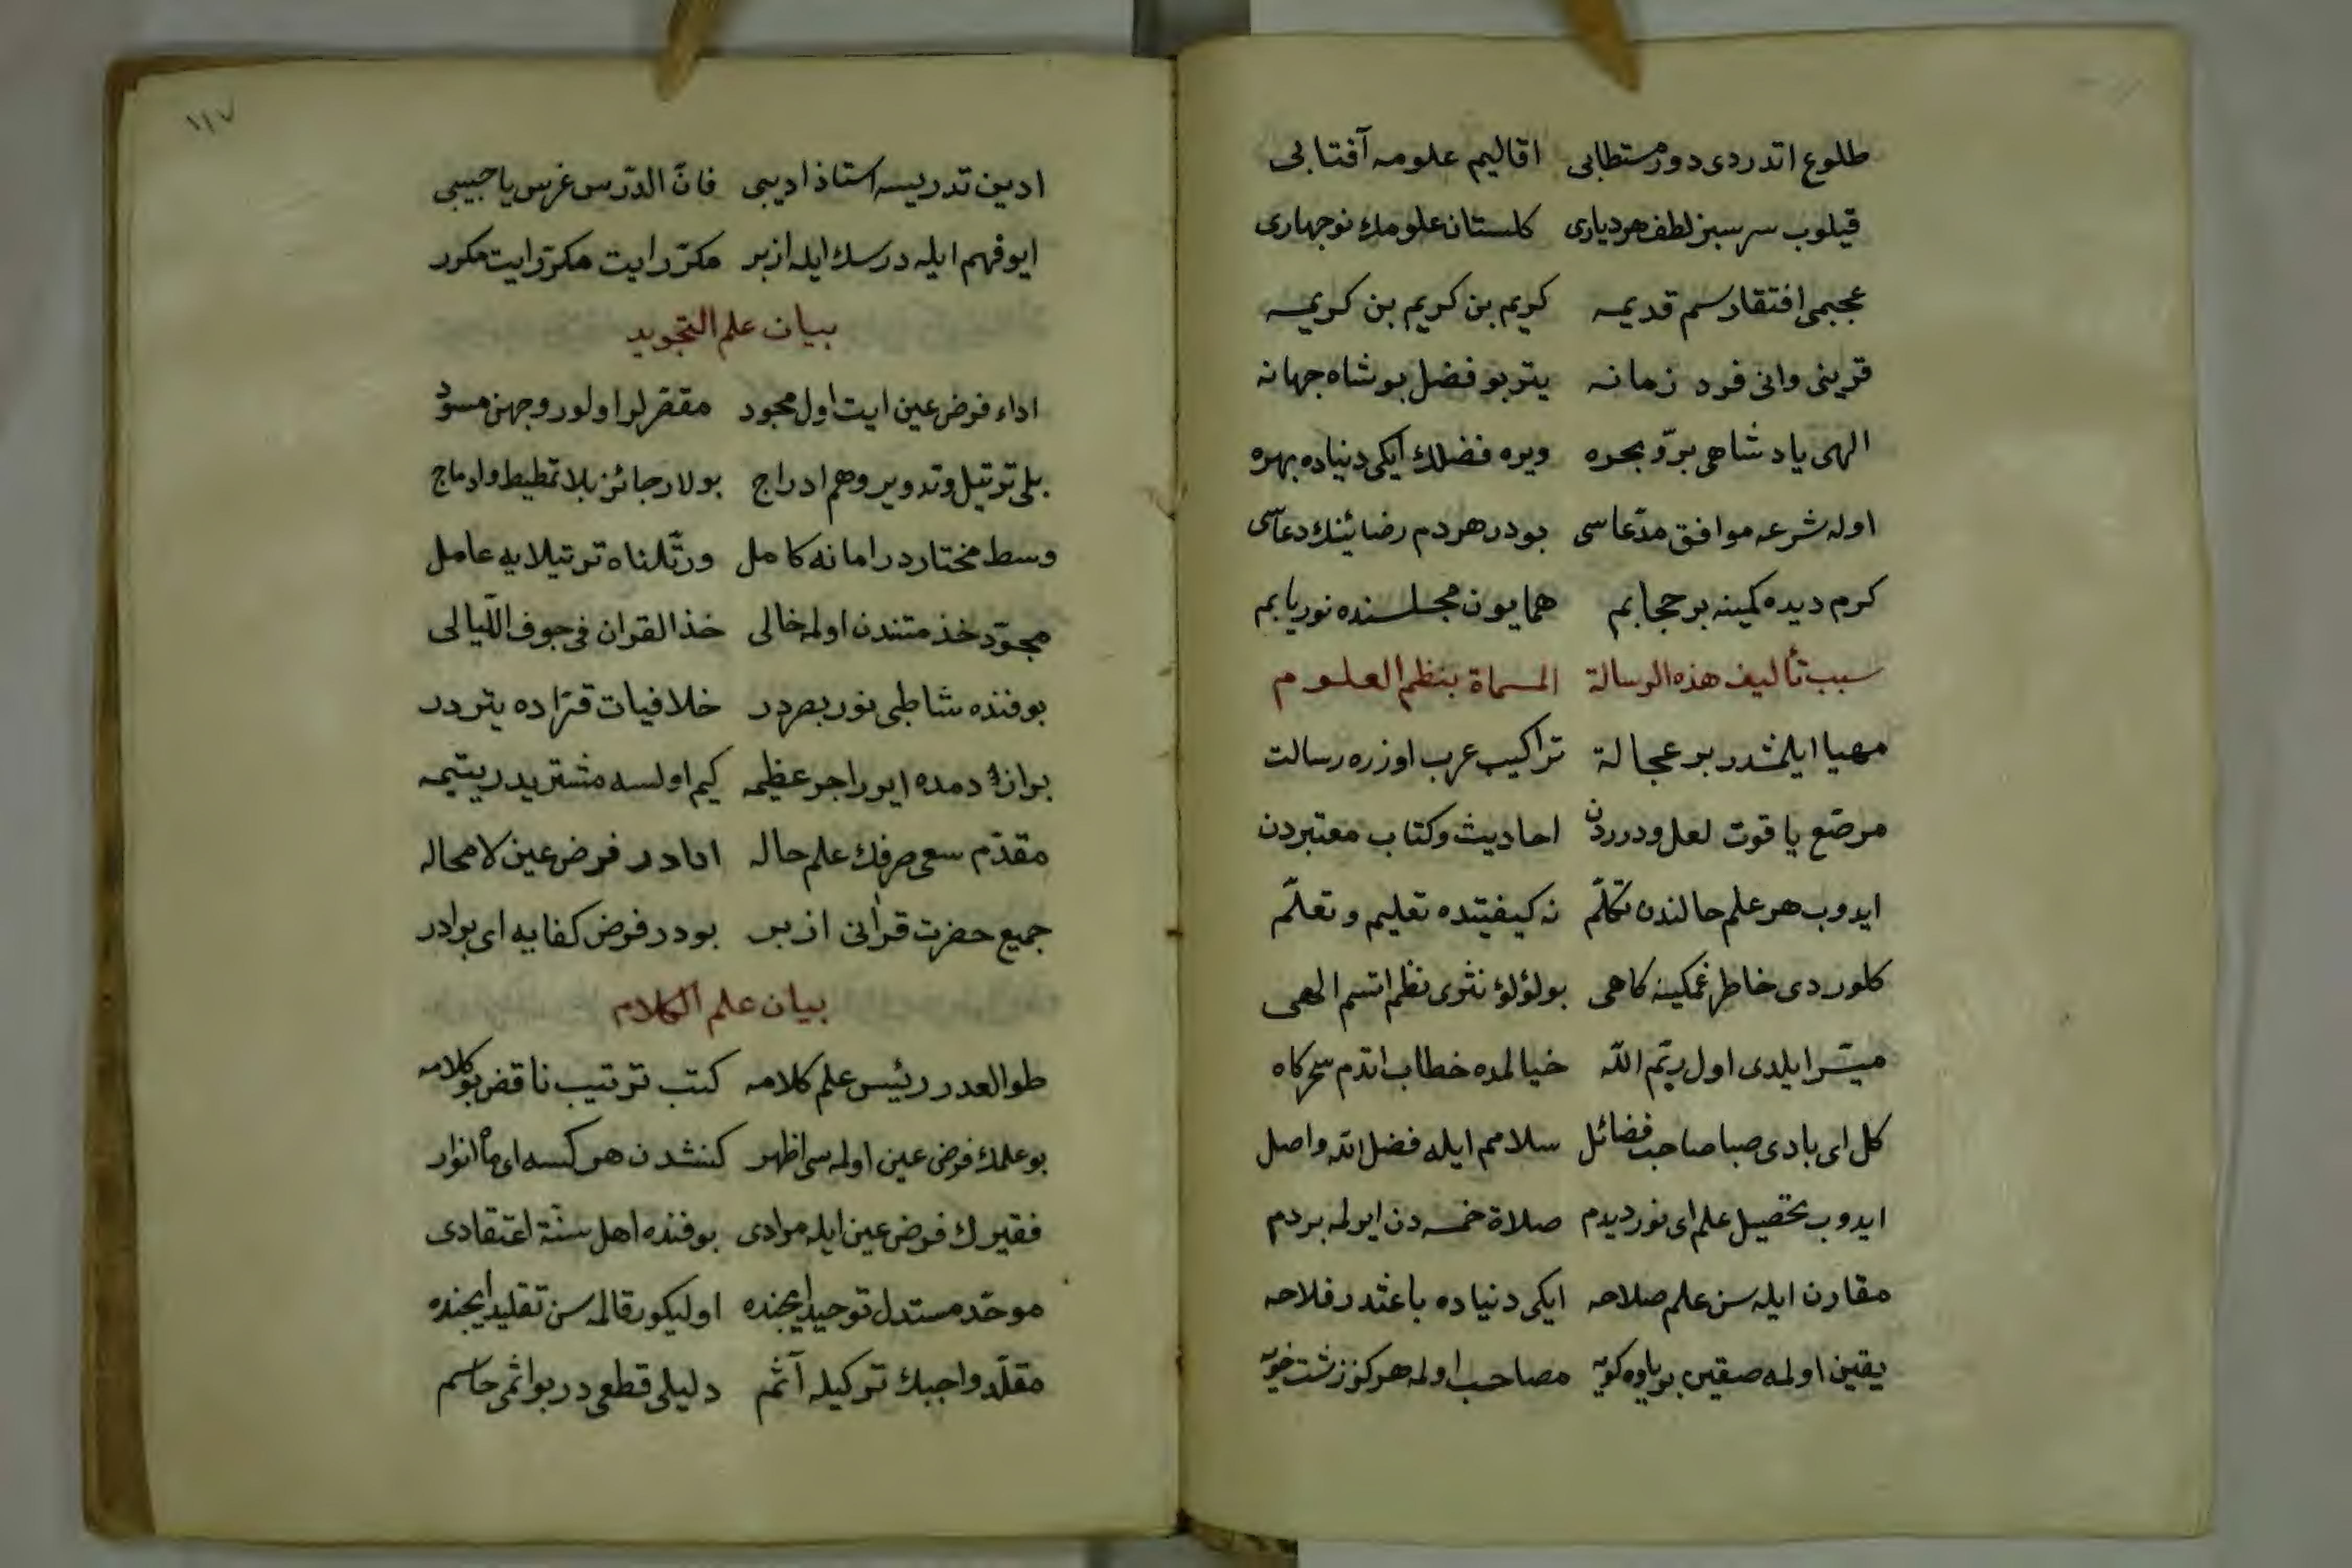 طلوع اتدردی دور مستطابی اقالیم علومه آفتابی
قیلوب سرسبز لطف هر دیاری کلستان علومك نوبهاری
عجبمی افتقار سم قدیمه کریم بن کریم بن کریمه
قرینی وانی فرد زمانه یتر بو فضل بو شاه جهانه
الهی یا دشاهی برّ و بحره ویره فضلك ایکی دنیاده بهره
اوله شرعه موافق مدّعاسی بودر هردم رضائینك دعاسی
کرم دیده کمینه بر حجابم همایون مجلسنده نوریابم
سبب تألیف هذه الرسالة المسماة بنظم العلوم
مهیا ایلمشدر بر عجالة تراکیب عرب اوزره رسالت
مرصّع یاقوت لعل و درردن احادیث وکتاب معتبردن
ایدوب هر علم حالندن تکلّم نه کیفیتده تعلیم و تعلّم
کلوردی خاطر غمکینه کاهی بو لؤلؤ نثری نظم اتسم الهی
میسّر ایلدی اول ربّم اللّه خیالمده خطاب اتدم سحرکاه
کل ای بادی صبا صاحب فضائل سلامم ایله فضل الله واصل
ایدوب تحصیل علم ای نور دیدم صلاة خمسه دن ایرلمه بردم
مقارن ایله سن علم صلاحه ایکی دنیاده باعثدر فلاحه
یقین اولمه صقین بر یاوه کویه مصاحب اولمه هرکز زشت خویه
١١٧
ادین تدریسه استاذ ادیبی فانّ الدّرس غرس یا حبیبی
ایو فهم ایله درسك ایله ازبر مکرّر ایت مکرّر ایت مکرر
بیان علم التجوید
اداء فرض عین ایت اول مجود مقفرلر اولور وجهن مسوّد
بلی ترتیل و تدویر و هم ادراج بولار جائز بلا تمطیط وادماج
وسط مختاردر امانه کامل ورتّلناه ترتیلایه عامل
مجوّد خذ متندن اولمه خالی خذ القران فی جوف اللّیالی
بو فنده شاطبی نور بصردر خلافیات قرّاده یتردر
بر از دمده ایور اجر عظیمه کیم اولسه مشتری در یتیمه
مقدّم سعی صرفك علم حاله ادادر فرض عین لامحاله
جمیع حضرت قرأنی ازبر بودر فرض کفایه ای برادر
بیان علم الکلام
طوالعدر رئیس علم کلامه کتب ترتیب ناقض بو کلامه
بو علمك فرض عین اولمه سی اظهر کنشدن هر کسه ای ماه انوار
فقیرك فرض عین ایله مرادی بو فنده اهل سنّة اعتقادی
موحّد مستدل توحید ایچنده اولیکور قالمه سن تقلید ایچنده
مقلّد واجبك ترکیله آثم دلیلی قطعی در بو اثمی حاسم